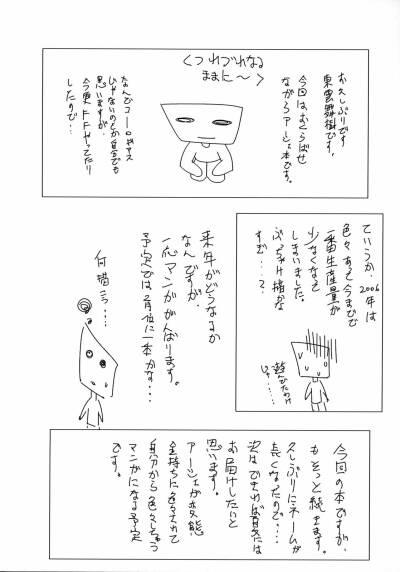 くつれづれなる
ままに～＞
お久しぶりです
東雲舞樹です。
今回は、おくらばせ
ながらアーシェ本です。
なんでコーロギヤス
じゃないのかと自分でも
思いますが、
今更FFやってたり
したので…
ていうか、2006年は
色々あって今までで
一番生産量が
少なくなって
しまいました。
ぶっちゃけ描かな
すぎ…？
遊んでたわけ
じゃ……
来年がどうなるか
なんですが、
一応マンガがんばります。
予定では月位に一本かな…
何描こう…
今回の本ですが、
もそっと続きます。
久しぶりにネームが
長くなったので…
次はできれば夏には
お届けしたいと
思います。
アーシェが変態
金持ちに色々されて
自分から色々しちゃう
マンガになる予定
です。